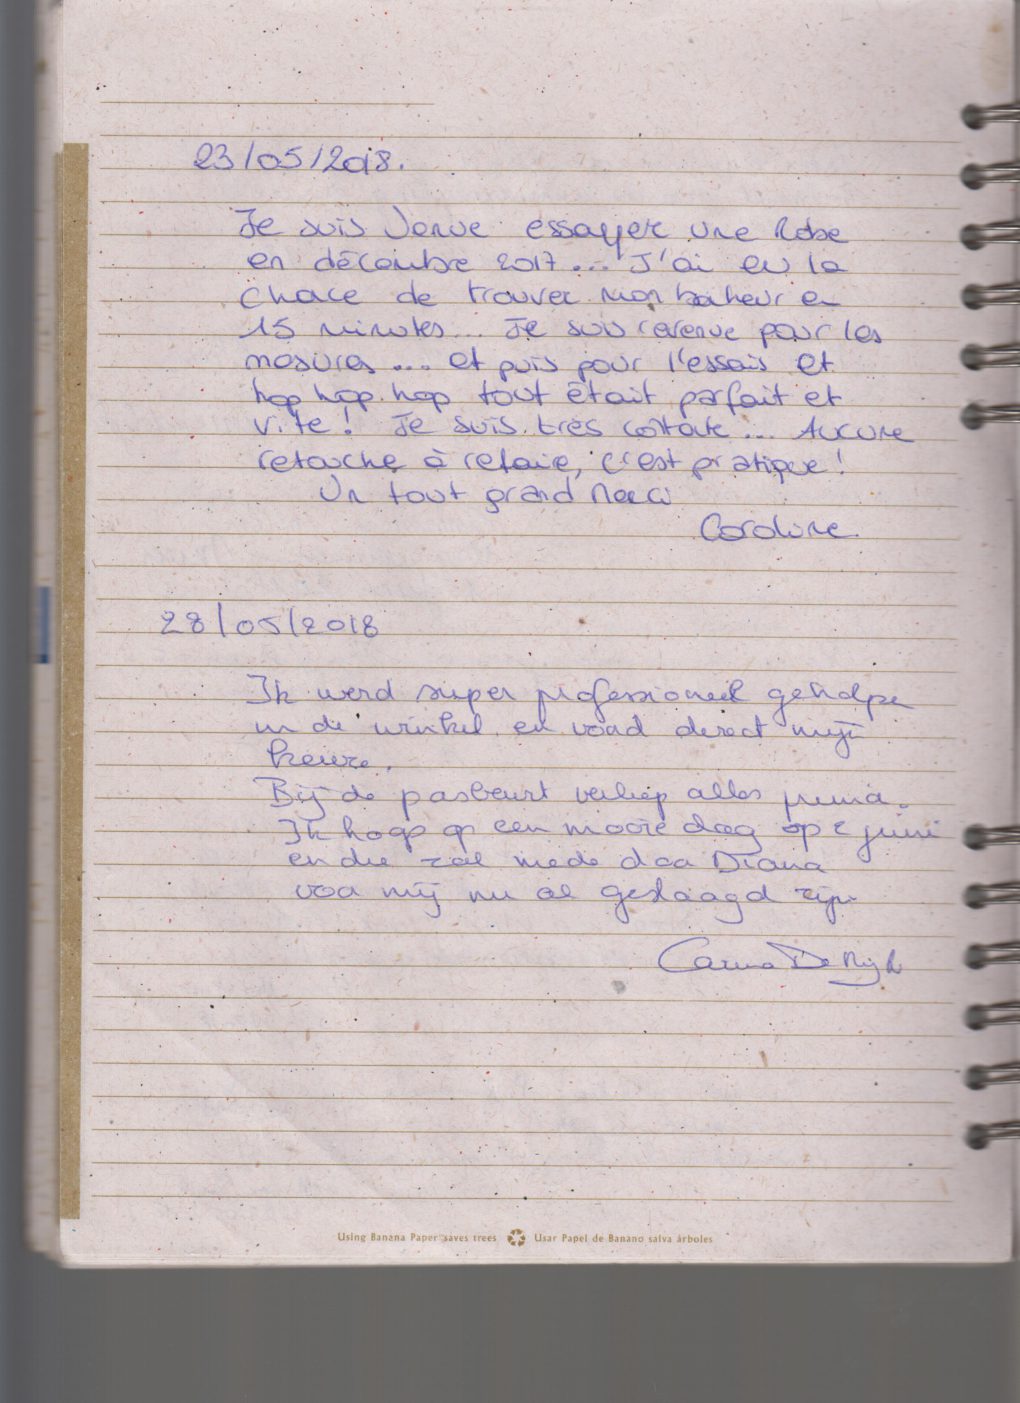 23/05/2018.
Je suis venue essayer une Robe
en décembre 2017... J'ai eu la
chance de trouver mon bonheur en
15 minutes... Je suis revenue pour les
mesures... et puis pour l'essais et
hop hop hop tout était parfait et
vite! Je suis très contente... Aucune
retouche à refaire, c'est pratique!
Un tout grand Merci
28/05/2018
Ik werd super professioneel geholpen
in de winkel en vond direct mijn
keuze.
Bij de pasbeurt verliep alles prima.
Ik hoop op een mooie dag op 2 juni
en die zal mede door Diana
voor mij nu al geslaagd zijn
Using Banana Paper saves trees Usar Papel de Banano salva árboles